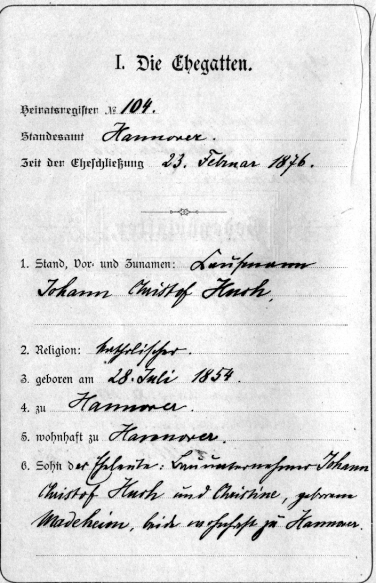 I. Die Ehegatten.
Heiratsregister № 104.
Standesamt Hannover.
Zeit der Eheschließung 23. Februar 1876.
1. Stand, Vor- und Zunamen: Kaufmann
Johann Christof Hush,
2. Religion: katholischer.
3. geboren am 28. Juli 1854.
4. zu Hannover.
5. wohnhaft zu Hannover.
6. Sohn der Eheleute: Bauunternehmer Johann
Christof Hush und Christine, geborene
Madeheim, beide wohnhaft zu Hannover.